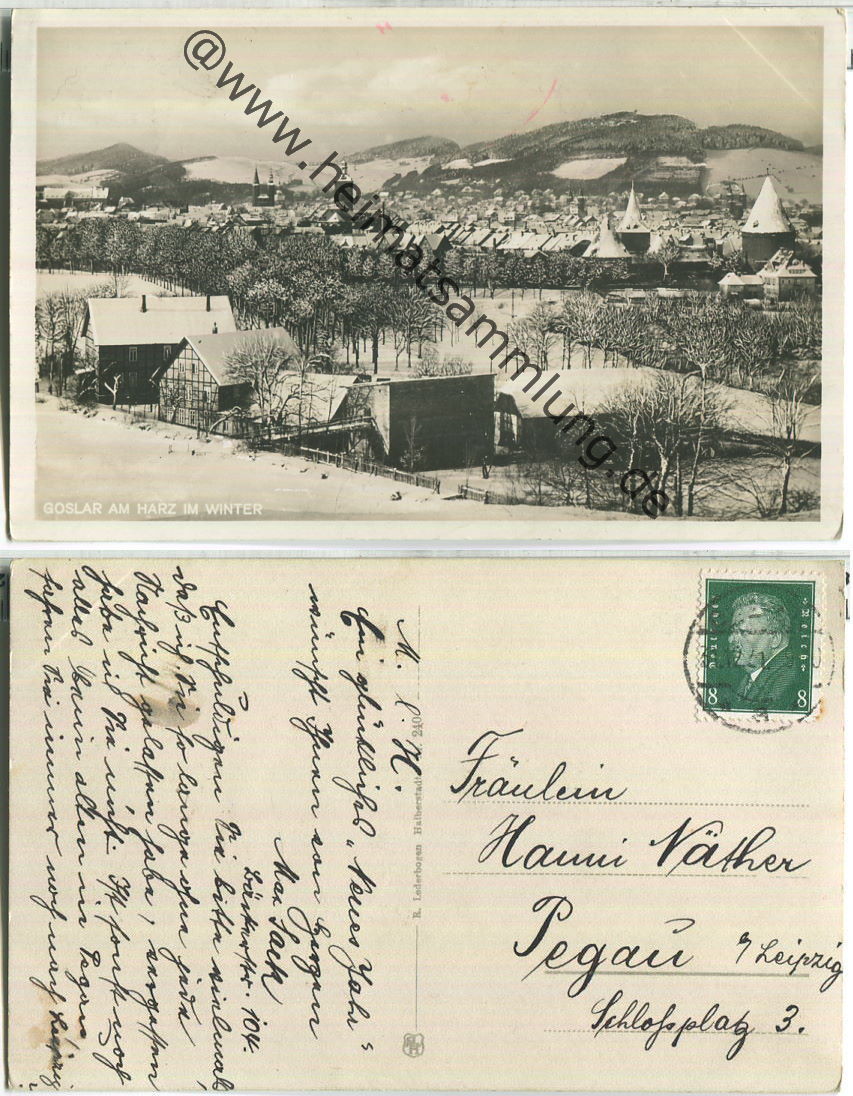 @www.heimatsammlung.de
GOSLAR AM HARZ IM WINTER
M. l. H.
Ein glückliches „Neues Jahr"
wünscht Ihnen von Herzen
Max Sack
104.
Entschuldigen Sie bitte vielmal,
daß ich Sie so lange ohne jede
Nachricht gelassen habe, vergessen
habe ich Sie nicht. Ist sonst noch
alles beim alten in Pegau
fahren Sie immer noch nach Leipzig
?
R. Lederbogen Halberstadt
Deutsches Reich
8 8
Fräulein
Hanni Näther
Pegau b/Leipzig
Schloßplatz 3.